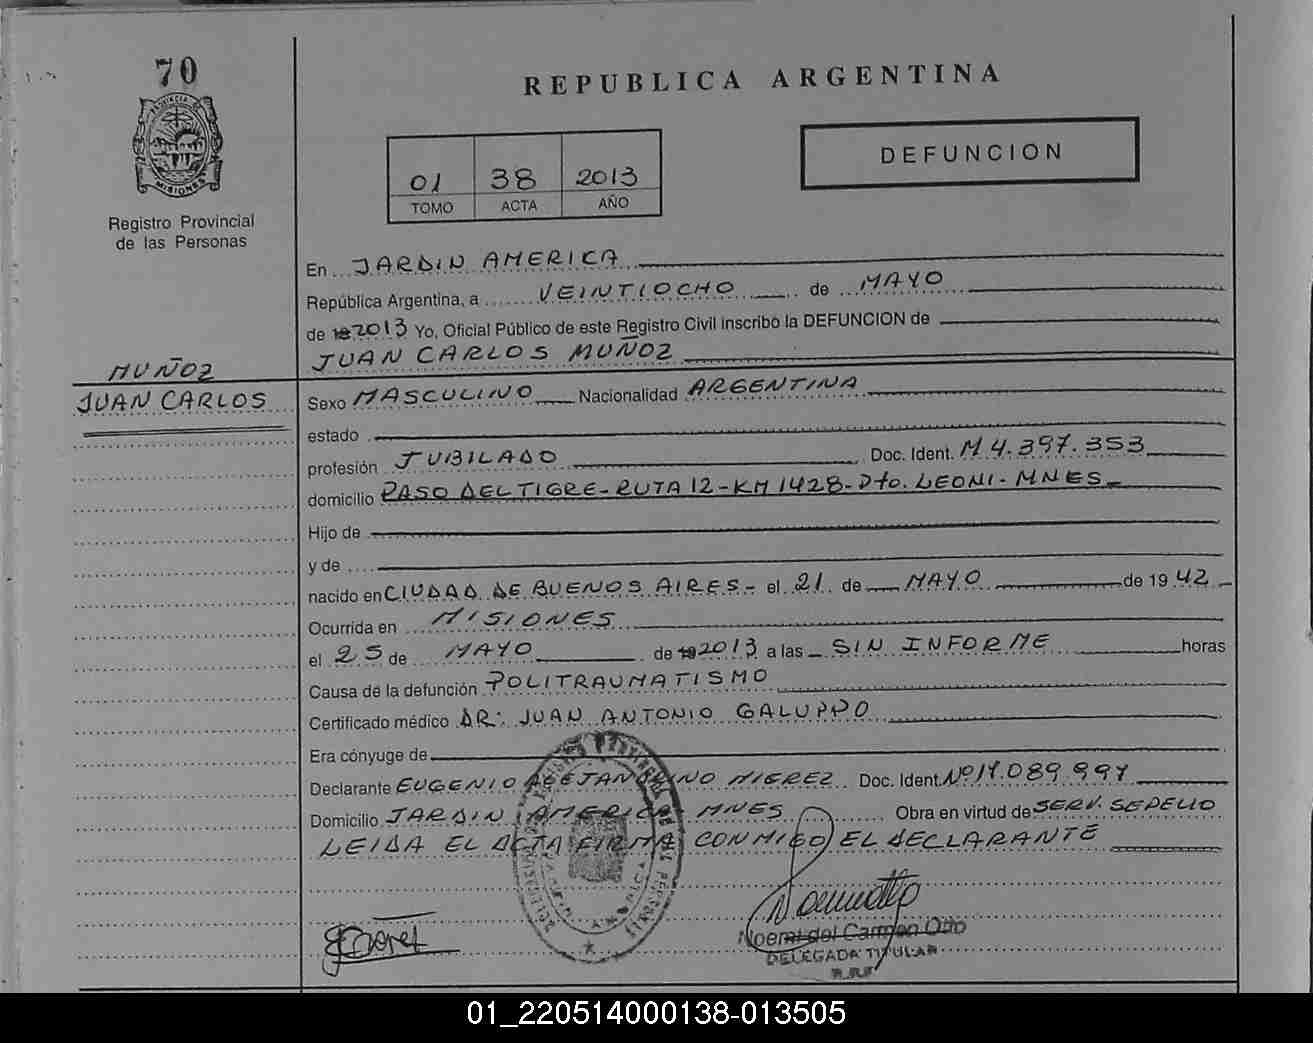 70
PROVINCIA DE
MISIONES
Registro Provincial
de las Personas
REPUBLICA ARGENTINA
01 38 2013
TOMO ACTA AÑO
DEFUNCION
En JARDIN AMERICA
República Argentina, a VEINTIOCHO de MAYO
de 2013 Yo, Oficial Público de este Registro Civil inscribo la DEFUNCION de
JUAN CARLOS MUÑOZ
MUÑOZ
JUAN CARLOS
Sexo MASCULINO Nacionalidad ARGENTINA
estado
profesión JUBILADO Doc. Ident. M 4.397.353
domicilio PASO DEL TIGRE-RUTA 12-KM 1428-Dto. LEONI-MNES-
Hijo de
y de
nacido en CIUDAD DE BUENOS AIRES- el 21 de MAYO de 1942
Ocurrida en MISIONES
el 25 de MAYO de 2013 a las SIN INFORME horas
Causa de la defunción POLITRAUMATISMO
Certificado médico DR: JUAN ANTONIO GALUPPO
Era cónyuge de
Declarante EUGENIO MIEREZ Doc. Ident. Nº 17.089.997
Domicilio JARDIN AMERICA MNES Obra en virtud de SERV. SEPELIO
LEIDA EL ACTA FIRMA CONMIGO EL DECLARANTE
Noemi del Carmen Otto
DELEGADA TITULAR
01_220514000138-013505